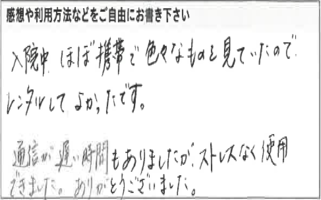 感想や利用方法などをご自由にお書き下さい
入院中 ほぼ携帯で色々なものを見ていたので
レンタルして よかったです。
通信が遅い時間もありましたが、ストレスなく使用
できました。ありがとうございました。